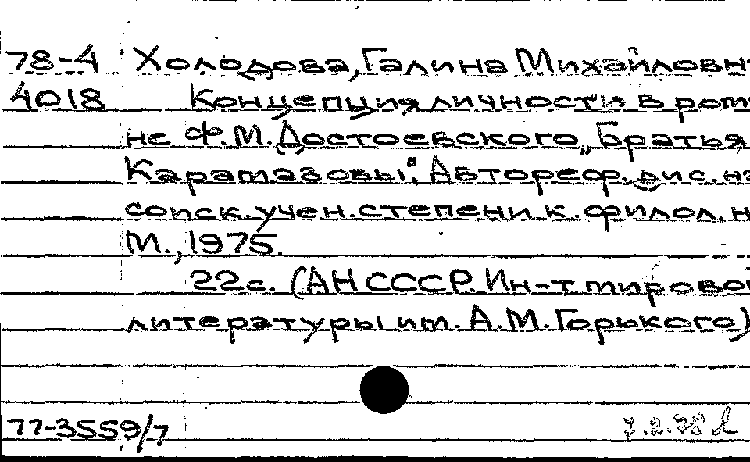 78-4 Холодова, Галина Михайловн
4018 Концепция личности в ром
не Ф.М. Достоевского „Братья
Карамазовы". Автореф. дис. на
соиск. учен. степени к. филол. н
М., 1975.
22с. (АН СССР. Ин-т мирово
литературы им. А.М. Горького)
77-3559/7
7.2.78